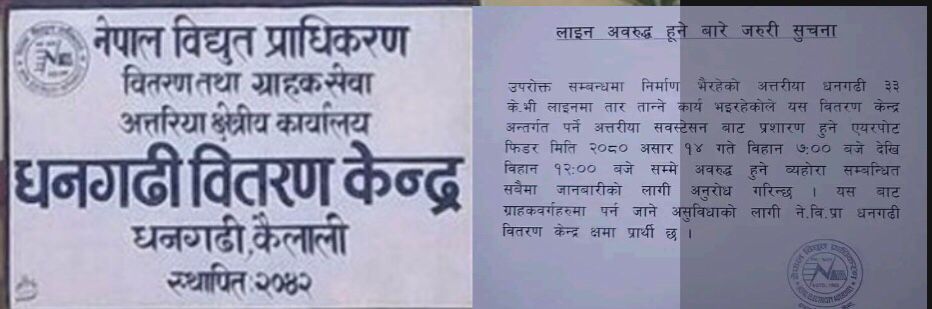 नेपाल विद्युत प्राधिकरण
वितरण तथा ग्राहक सेवा
अत्तरिया क्षेत्रीय कार्यालय
धनगढी वितरण केन्द्र
धनगढी, कैलाली
स्थापित: २०४२
लाइन अवरुद्ध हूने बारे जरुरी सुचना
उपरोक्त सम्बन्धमा निर्माण भैरहेको अत्तरीया धनगढी ३३
के.भी लाइनमा तार तान्ने कार्य भइरहेकोले यस वितरण केन्द्र
अन्तर्गत पर्ने अत्तरीया सवस्टेसन बाट प्रशारण हुने एयरपोट
फिडर मिति २०८० असार १४ गते विहान ७:०० बजे देखि
विहान १२:०० बजे सम्मे अवरुद्ध हुने व्यहोरा सम्बन्धित
सवैमा जानबारीको लागी अनुरोध गरिन्छ । यस बाट
ग्राहकवर्गहरुमा पर्न जाने असुविधाको लागी ने.वि.प्रा धनगढी
वितरण केन्द्र क्षमा प्रार्थी छ ।
नेपाल विद्युत प्राधिकरण
NEPAL ELECTRICITY AUTHORITY